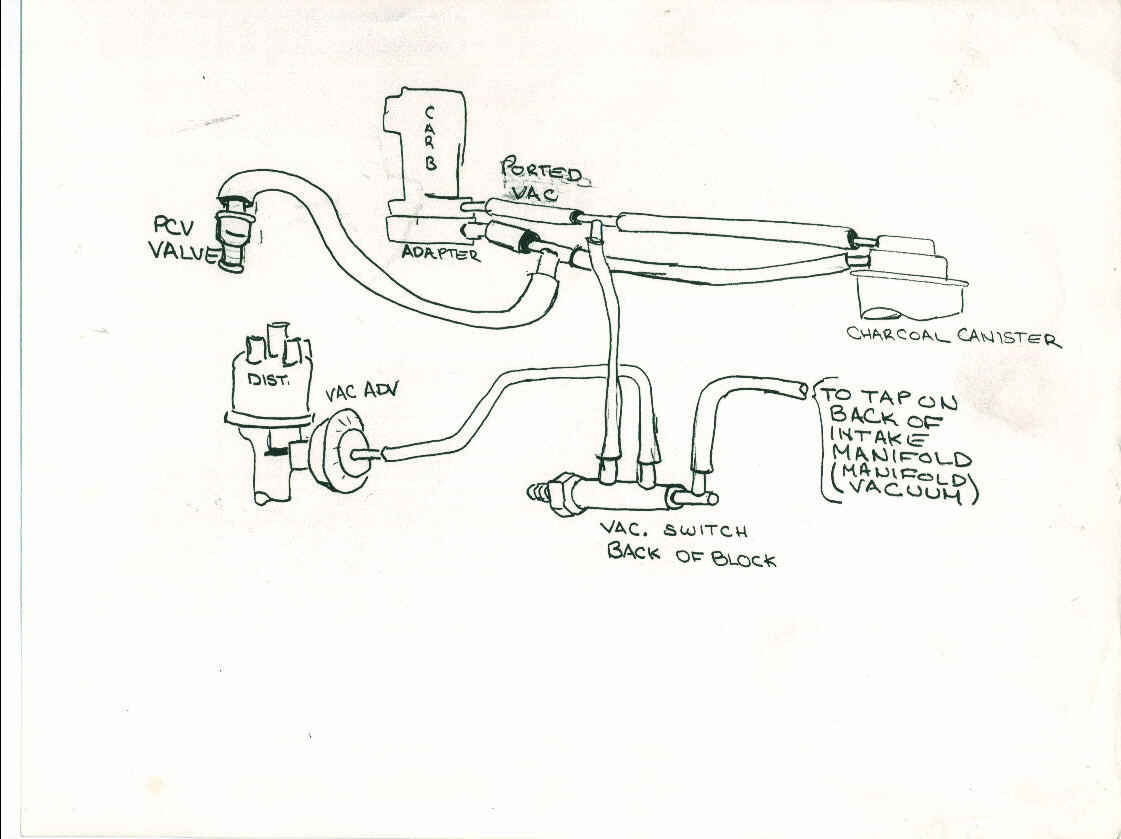 CARB
PORTED
VAC
PCV
VALVE
ADAPTER
CHARCOAL CANISTER
DIST.
VAC ADV
TO TAP ON
BACK OF
INTAKE
MANIFOLD
(MANIFOLD
VACUUM)
VAC. SWITCH
BACK OF BLOCK